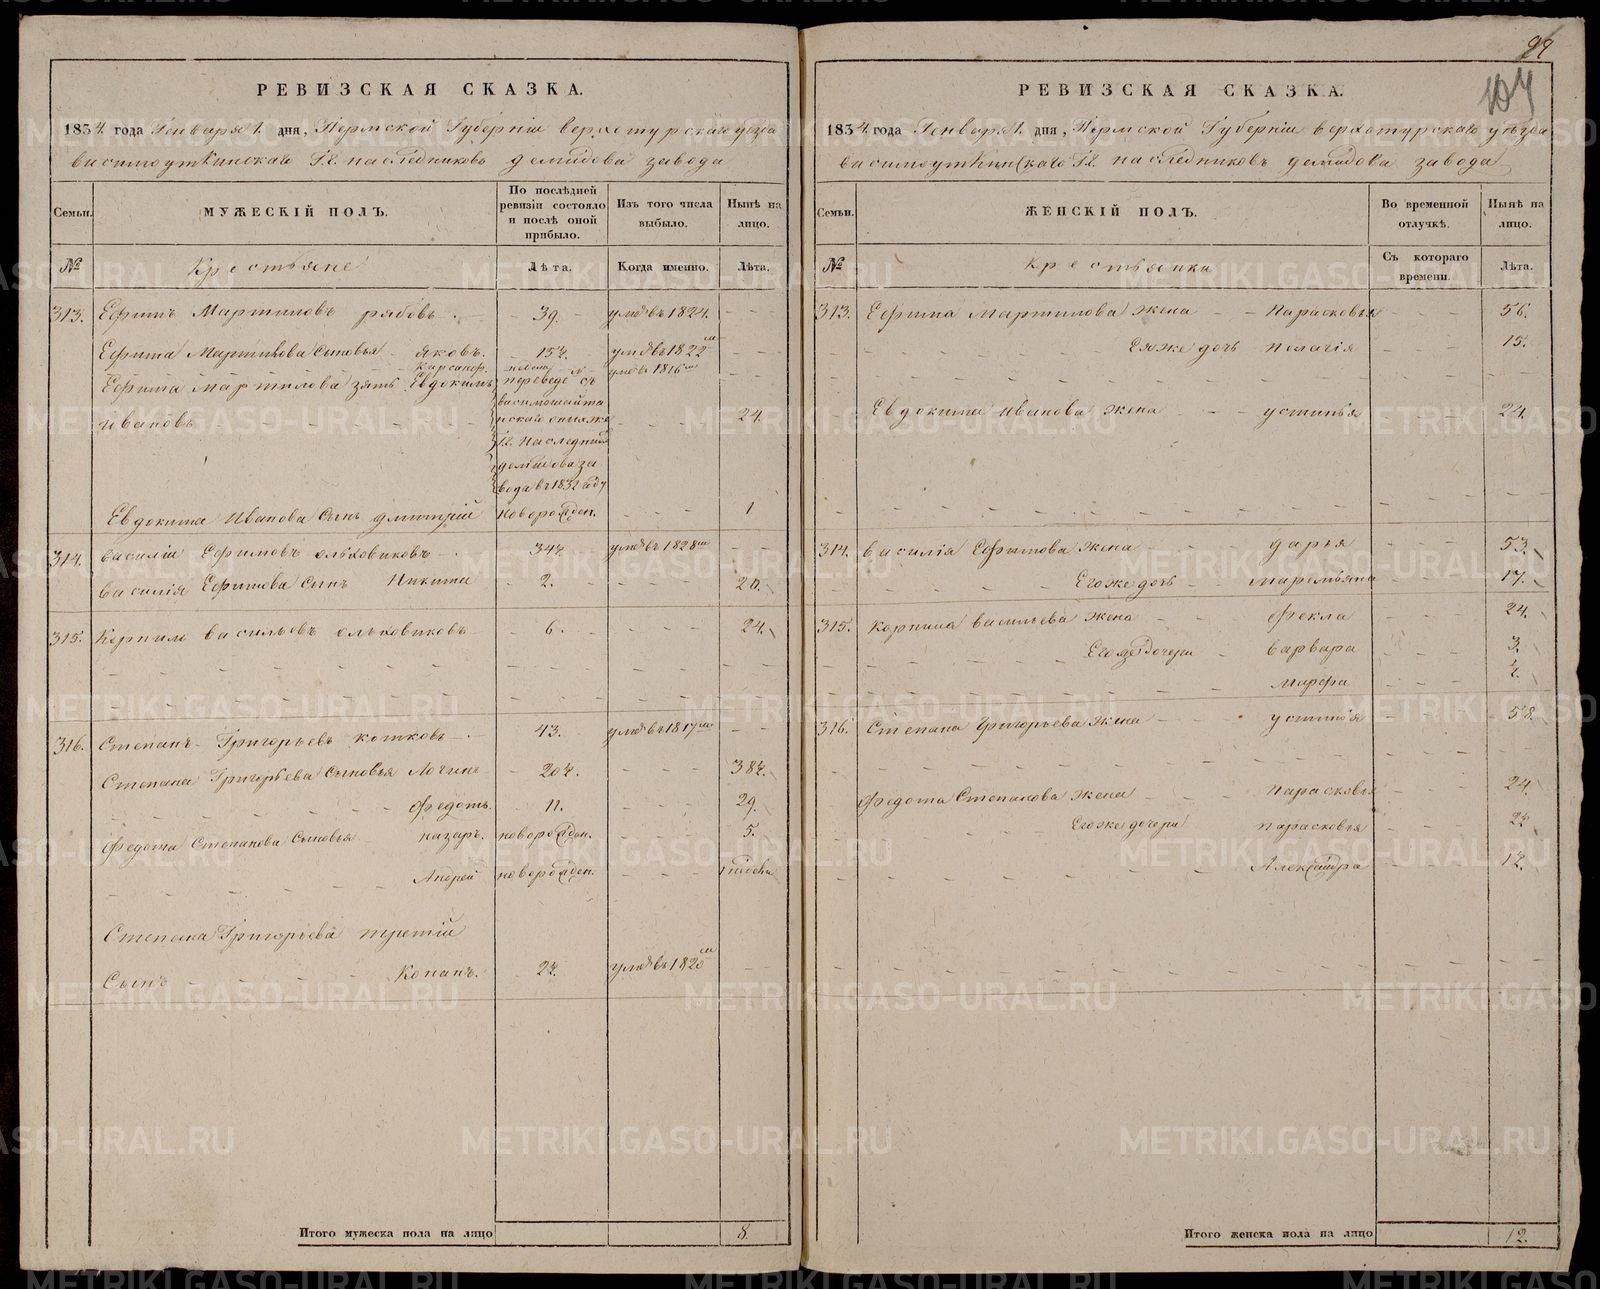 99
107
РЕВИЗСКАЯ СКАЗКА.
1834. года Генваря 1. дня, Пермской Губерніи верхотурскаго уезда
висимоуткинскаго Г.г. наследниковъ демидова завода
Семьи.
МУЖЕСКІЙ ПОЛЪ.
По послѣдней ревизіи состояло и послѣ оной прибыло.
Изъ того числа выбыло.
Нынѣ на лицо.
№
Крестьяне
Лѣта.
Когда именно.
Лѣта.
313. Ефимъ Мартиновъ рябовъ. 39. умеръ въ 1824.
Ефима Мартинова Сыновья яковъ. 15½. умеръ въ 1822
умеръ въ 1816
Ефима Мартилова зять Евдокимъ переведе съ
ивановъ 24.
наследник
демидова за
вода въ 1832 году
Евдокима Иванова Сынъ дмитрій новорожден. 1
314. василіи Ефимовъ ольховиковъ 34½ умеръ въ 1828
василія Ефимова Сынъ Никита 2. 20.
315. Корнилъ васильевъ ольховиковъ 6. 24.
316. Степанъ Григорьевъ котковъ 43. умеръ въ 1817
Степана Григорьева Сыновья Логинъ 20½. 38½.
Федотъ. 11. 29.
Федота Степанова Сыновья назаръ. новорожден. 5.
Андрей новорожден.
Степана Григорьева третій
Сынъ Конанъ. 2½. умеръ въ 1820
Итого мужеска пола на лицо 8.
РЕВИЗСКАЯ СКАЗКА.
1834. года Генваря 1. дня, Пермской Губерніи верхотурскаго уѣзда
висимоуткинскаго Г.г. наследниковъ демидова завода
Семьи.
ЖЕНСКІЙ ПОЛЪ.
Во временной отлучкѣ.
Нынѣ на лицо.
№
крестьянки
Съ котораго времени.
Лѣта.
313. Ефима Мартилова жена Парасковья 56.
Ея же дочь Пелагія 15.
Евдокима Иванова жена устинья 24.
314. василія Ефимова жена дарья 53.
Его же дочь Маремьяна 17.
315. Корнила васильева жена фекла 24.
Его же дочери варвара 3.
Марфа ½.
316. Степана Григорьева жена устинія 58.
Федота Степанова жена парасковья 24.
Его же дочери парасковья 2½
Александра 1½.
Итого женска пола на лицо 12.
METRIKI.GASO-URAL.RU